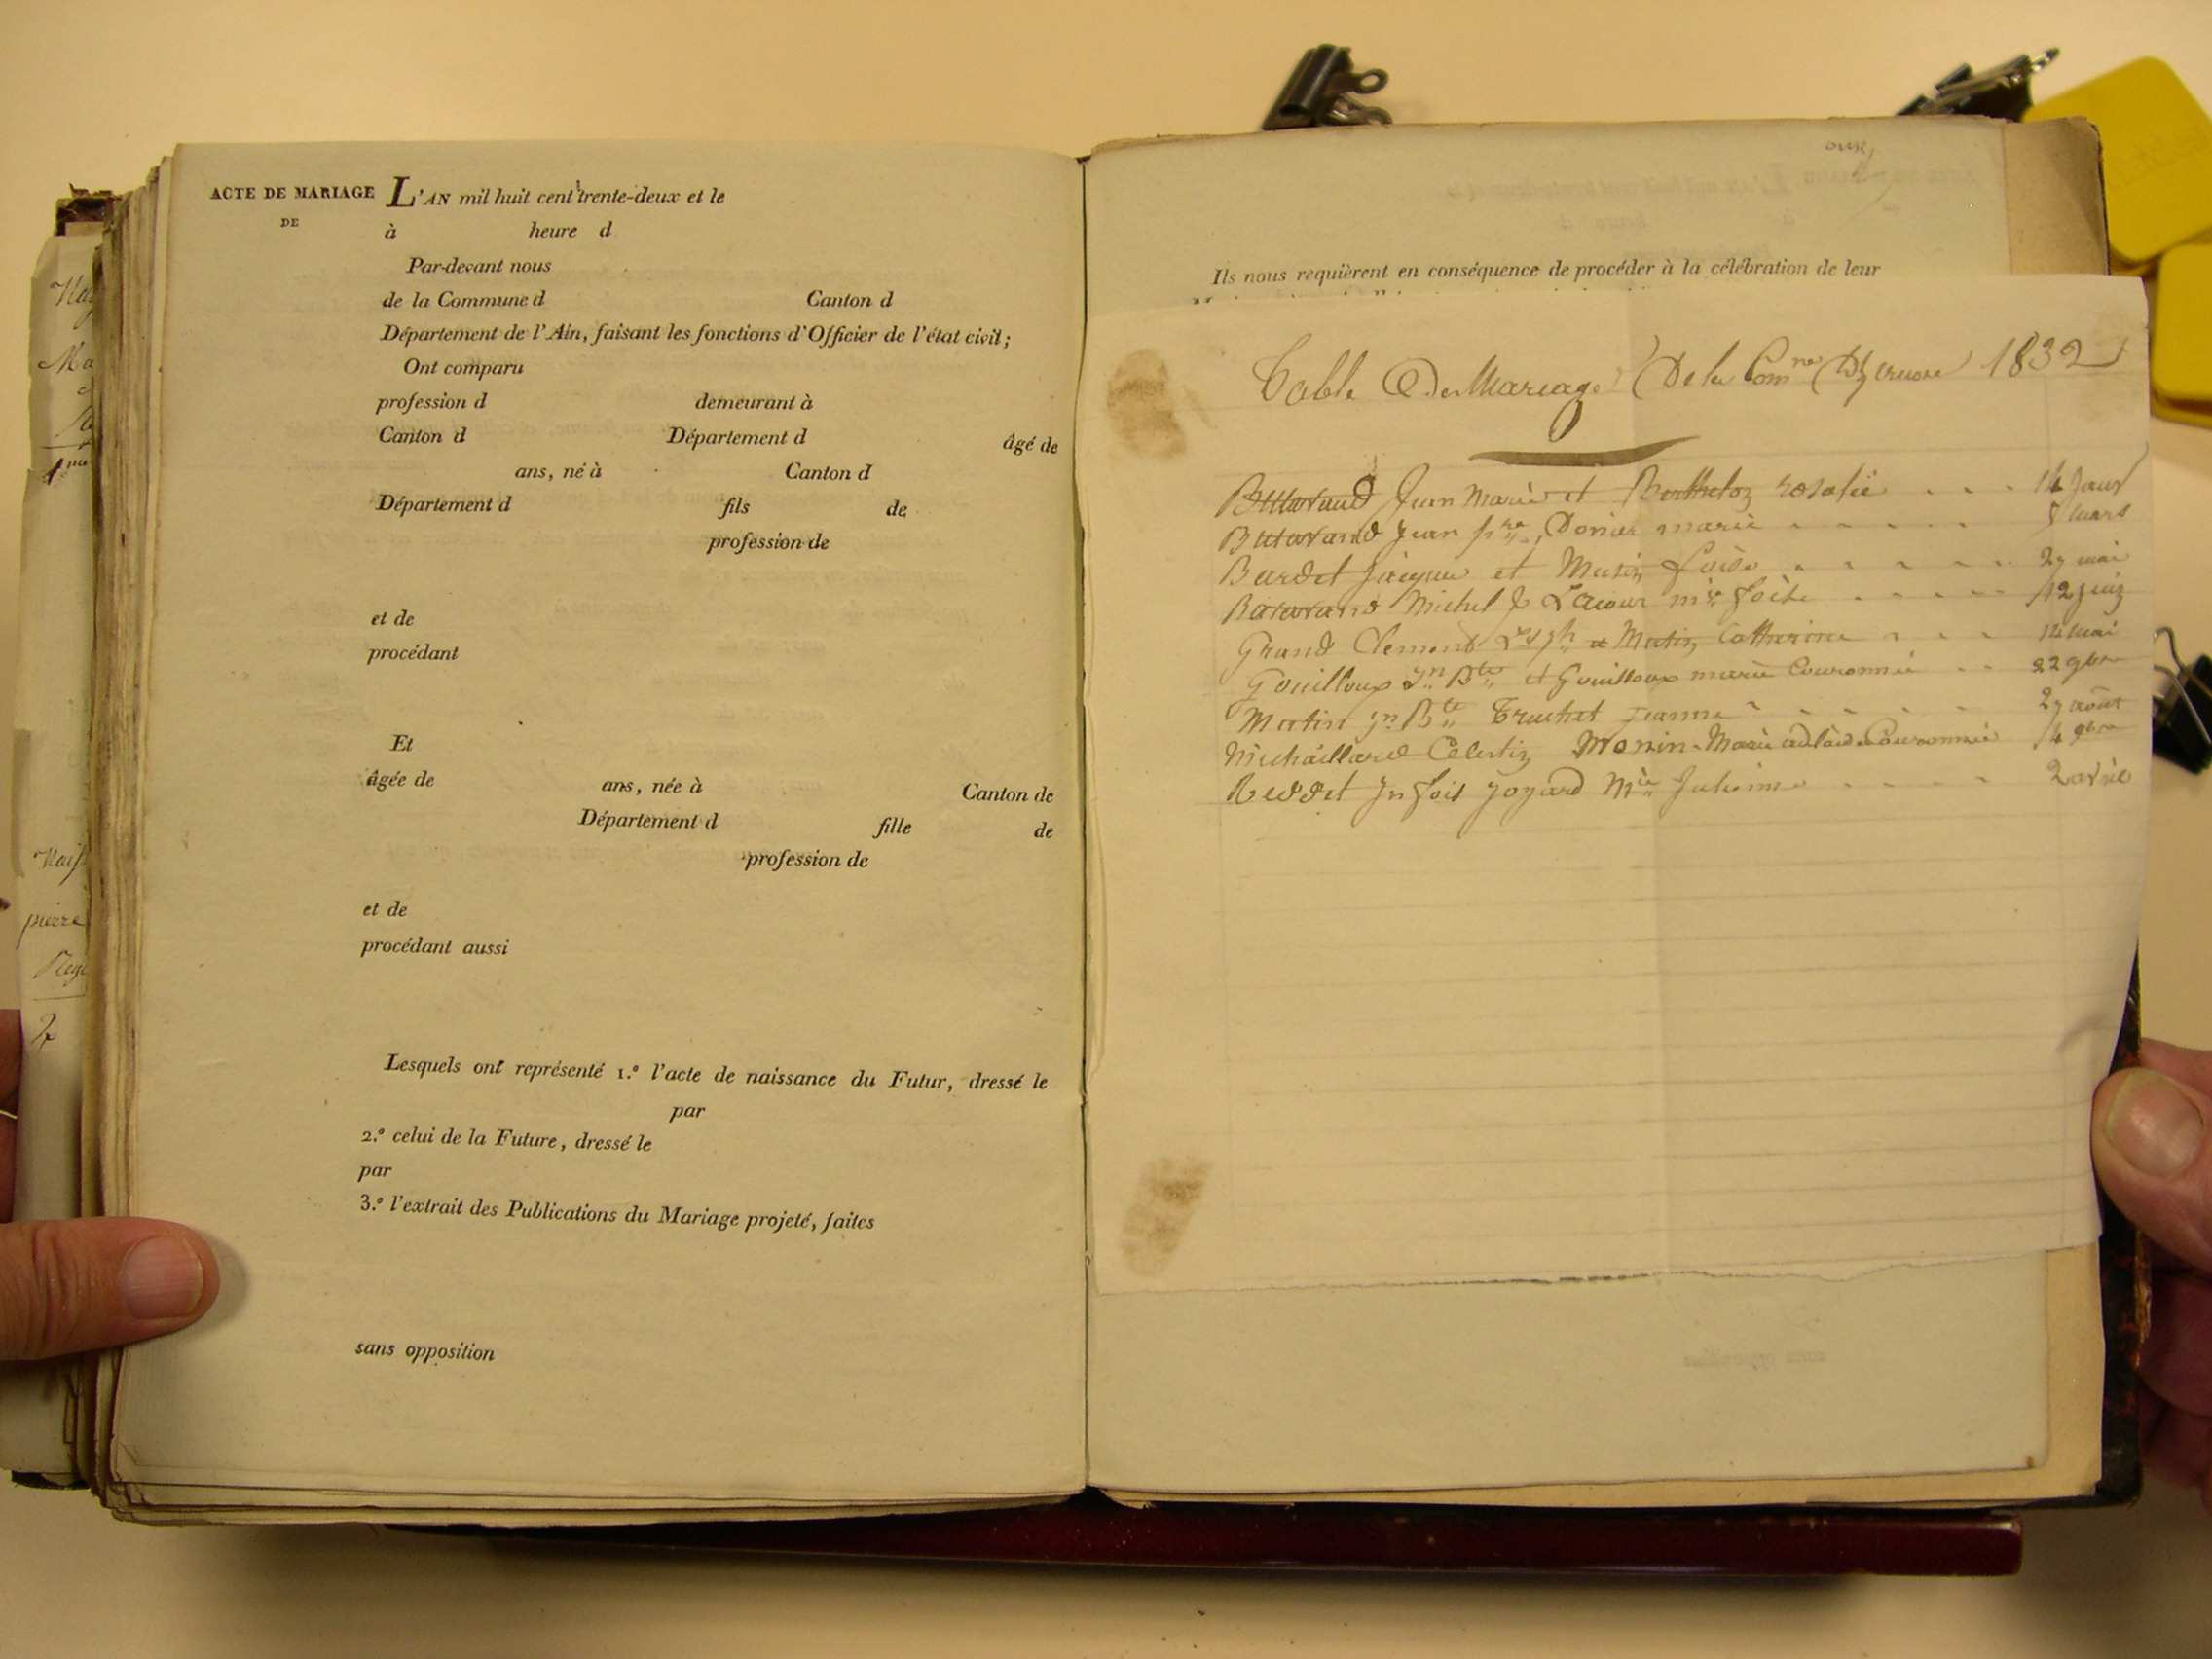 ACTE DE MARIAGE L'AN mil huit cent trente-deux et le
DE
à heure d
Par-devant nous
de la Commune d Canton d
Département de l'Ain, faisant les fonctions d'Officier de l'état civil;
Ont comparu
profession d demeurant à
Canton d Département d âgé de
ans, né à Canton d
Département d fils de
profession de
et de
procédant
Et
âgée de ans, née à Canton de
Département d fille de
profession de
et de
procédant aussi
Lesquels ont représenté 1.º l'acte de naissance du Futur, dressé le
par
2.º celui de la Future, dressé le
par
3.º l'extrait des Publications du Mariage projeté, faites
sans opposition
Ils nous requièrent en conséquence de procéder à la célébration de leur
Table Des Mariage De la Comne 1832
Jean Marie et Berthelon rosalie . . . 14 Janv
Jean pre Donier marie 8 mars
Bardet Jacque et 29 mai
Michel & Lacour 12 juin
Grand Clement Catherine 12 mai
Gouilloux Jn Bte et Gouilloux marie Couronnée 22 9bre
Jn Bte Truchet Jeanne 29 août
Michaillard Celestin Monin Marie adlaide Couronnée
Reddet Jn fois Joyard Mie Julienne 2 avril
pierre